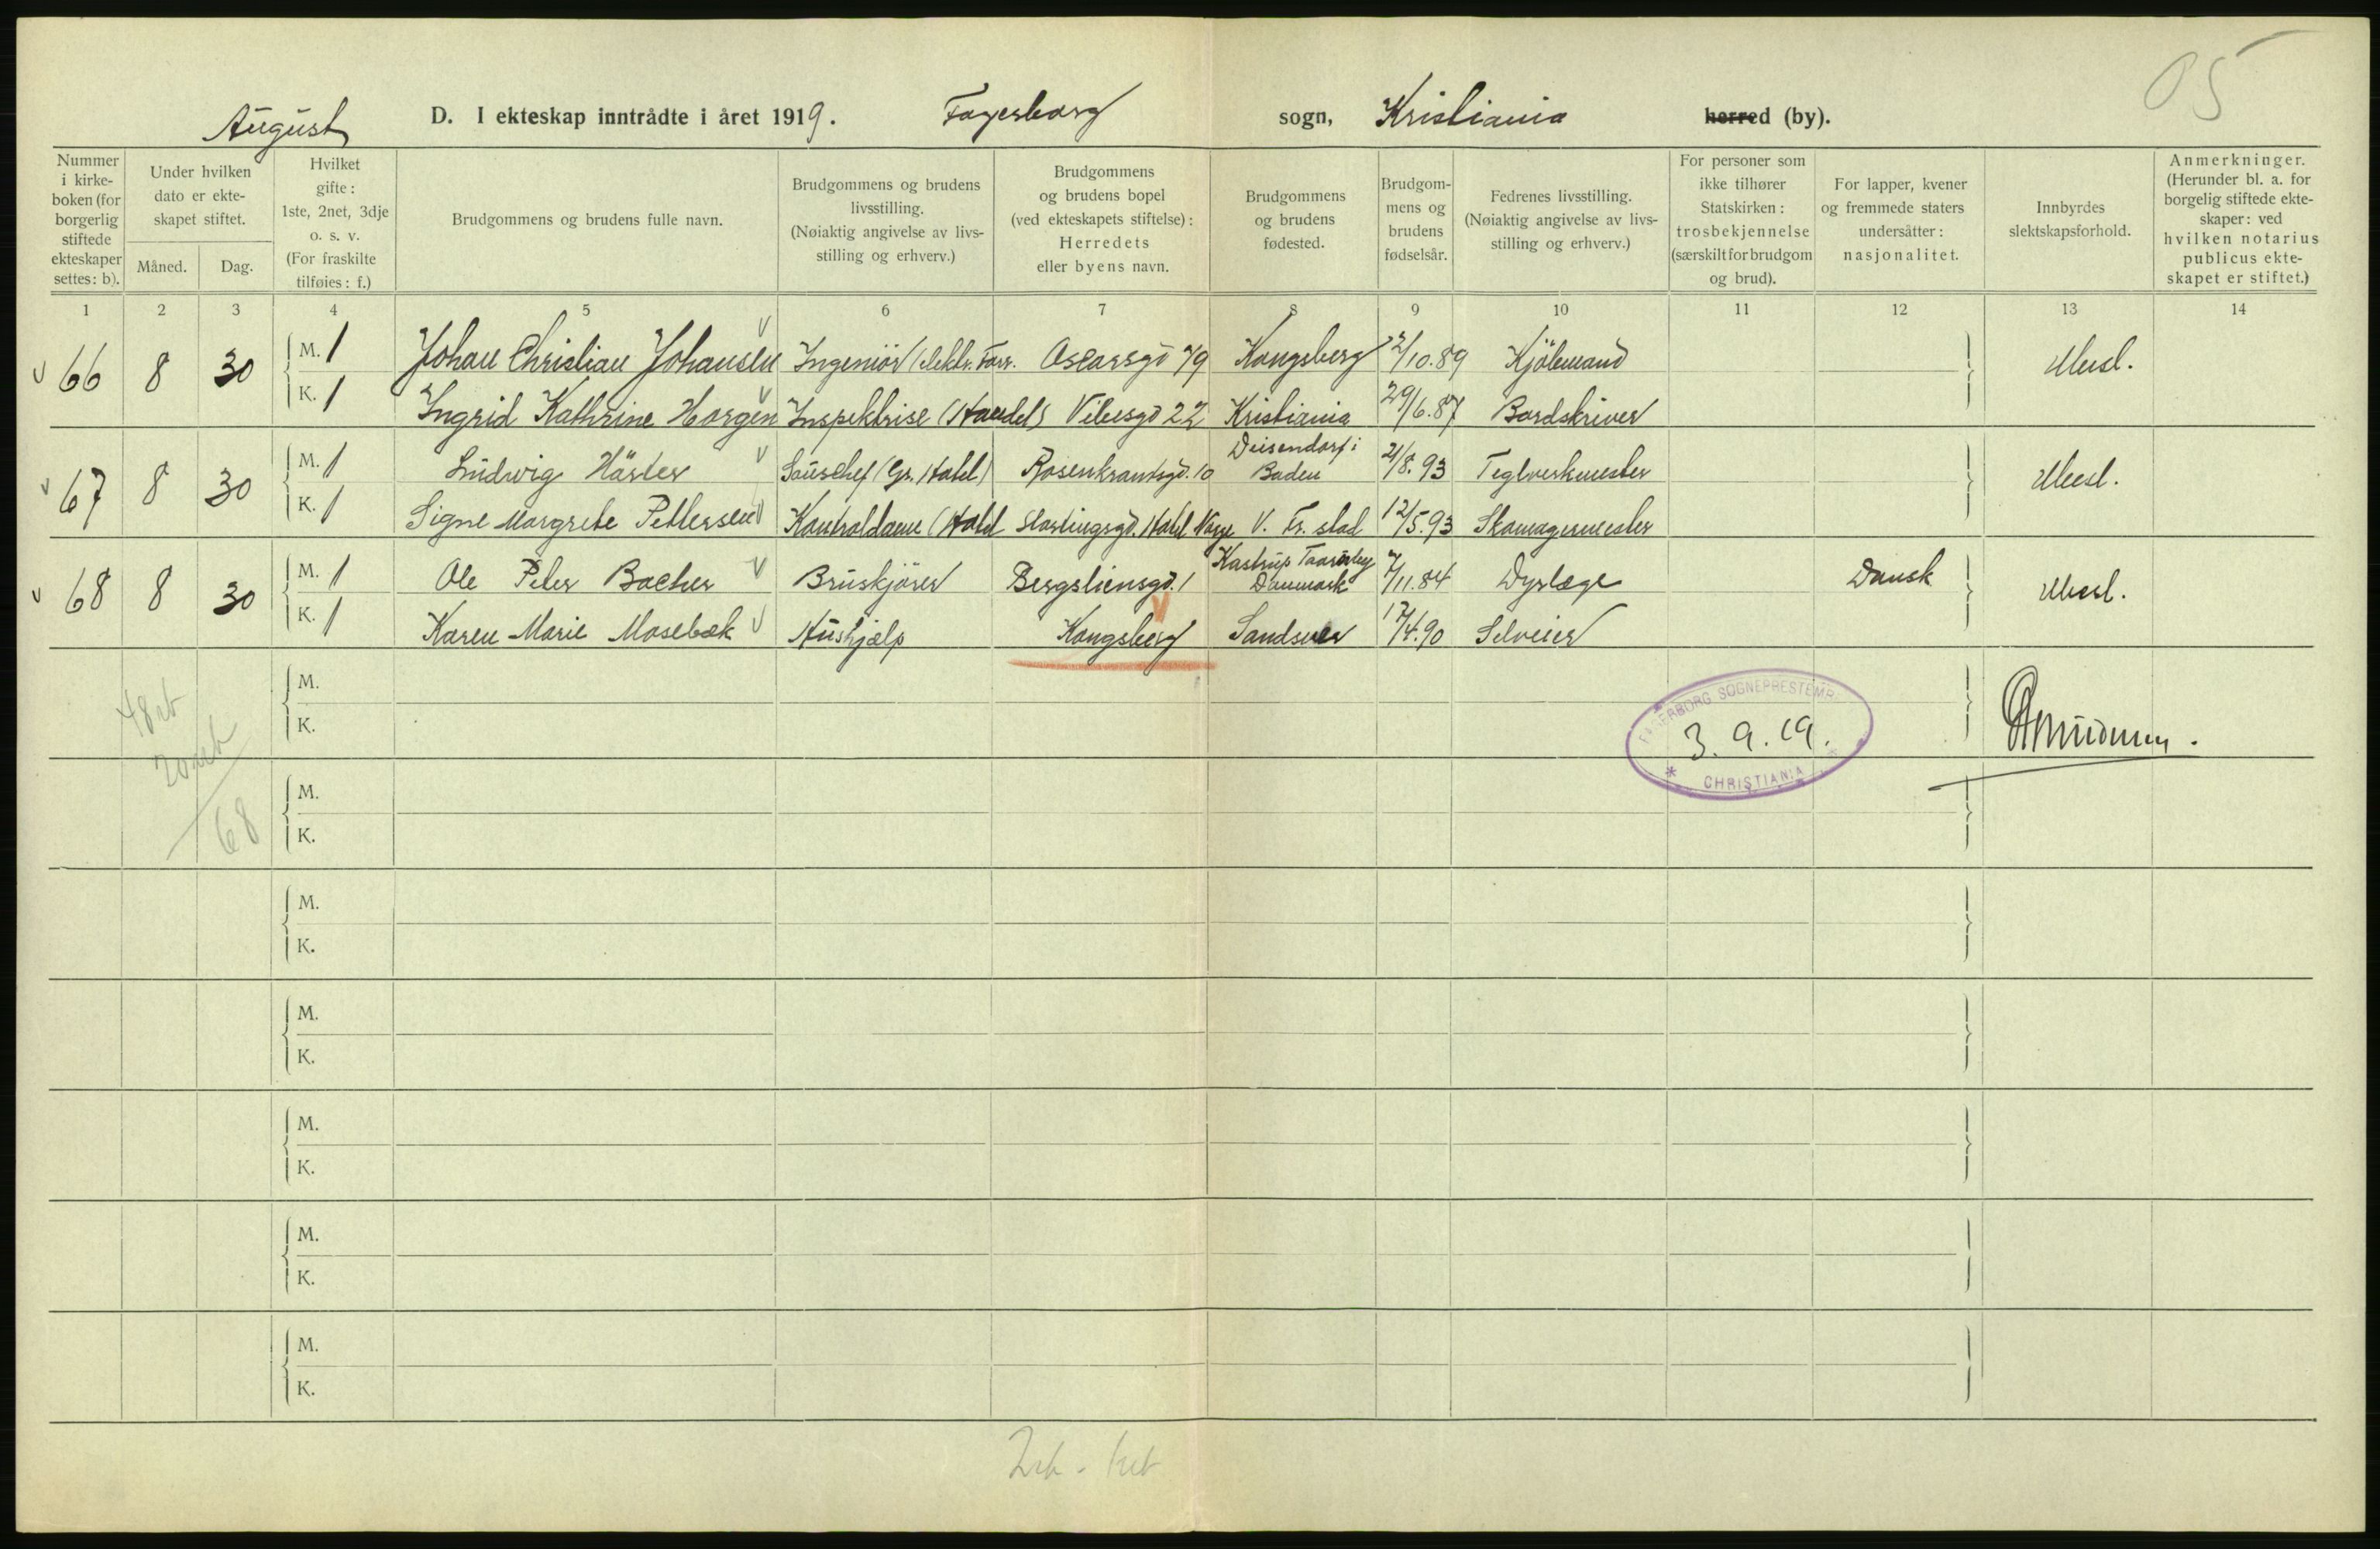 05
August D. I ekteskap inntrådte i året 1919. Fagerborg sogn, Kristiania herred (by).
Nummer i kirke- boken (for borgerlig stiftede ekteskaper settes: b).
Under hvilken dato er ekte- skapet stiftet.
Måned. Dag.
Hvilket gifte: 1ste, 2net, 3dje o. s. v. (For fraskilte tilføies: f.)
Brudgommens og brudens fulle navn.
Brudgommens og brudens livsstilling. (Nøiaktig angivelse av livs- stilling og erhverv.)
Brudgommens og brudens bopel (ved ekteskapets stiftelse): Herredets eller byens navn.
Brudgommens og brudens fødested.
Brudgom- mens og brudens fødselsår.
Fedrenes livsstilling. (Nøiaktig angivelse av livs- stilling og erhverv.)
For personer som ikke tilhører Statskirken: trosbekjennelse (særskilt for brudgom og brud).
For lapper, kvener og fremmede staters undersåtter: nasjonalitet.
Innbyrdes slektskapsforhold.
Anmerkninger. (Herunder bl. a. for borgelig stiftede ekte- skaper: ved hvilken notarius publicus ekte- skapet er stiftet.)
1 2 3 4 5 6 7 8 9 10 11 12 13 14
66 8 30 M. 1 Johan Christian Johansen Ingeniör (elektr. Forr. Oscarsgd 79 Kongsberg 2/10.89 Kjölemand Ubesl.
K. 1 Ingrid Kathrine Horgen Inspektrise (Handel) Vibesgd 22 Kristiania 29/6.87 Bordskriver
67 8 30 M. 1 Ludwig Härter Sauschef (Gr. Hotel) Rosenkrantsgd. 10 Deisendorf i Baden 21/8.93 Teglverkmester Ubesl.
K. 1 Signe Margrete Pettersen Kontroldame (Hotel Stortingsgd. Hotel Norge V. Fr. stad 12/5.93 Skomagermester
68 8 30 M. 1 Ole Peter Bacher Bruskjörer Bergsliensgd. 1 Kastrup Taarnby Danmark 7/11.84 Dyrlæge Dansk Ubesl.
K. 1 Karen Marie Mosebæk Hushjælp Kongsberg Sandsvær 17/4.90 Selveier
M.
K.
FAGERBORG SOGNEPRESTEMB
3.9.19.
CHRISTIANIA
M.
K.
68
M.
K.
M.
K.
M.
K.
M.
K.
M.
K.